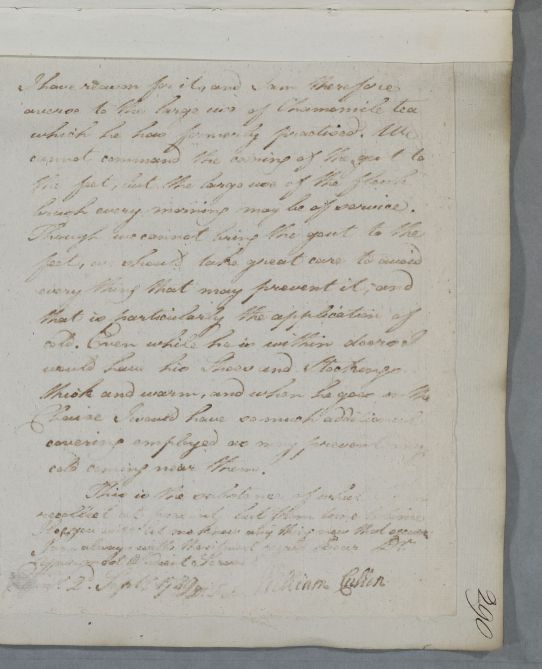 I have reason for it, and I am therefore
averse to the large use of Chamomile tea
which he has formerly practised. We
cannot command the coming of the gout to
the feet, but the large use of the flesh
brush every morning may be of service.
Though we cannot bring the gout to the
feet, we should take great care to avoid
every thing that may prevent it, and
that is particularly the application of
cold. Even while he is within doors I
would have his Shoes and Stockings
thick and warm, and when he goes in the
Chaise I would have so much additional
covering employed as may prevent any
cold coming near them.
This is the substance of what I
recollect at present, but
you will let me know any thing new that occurs
I am always with the Dear Dr
Servant
2d. Sept.
William Cullen
290